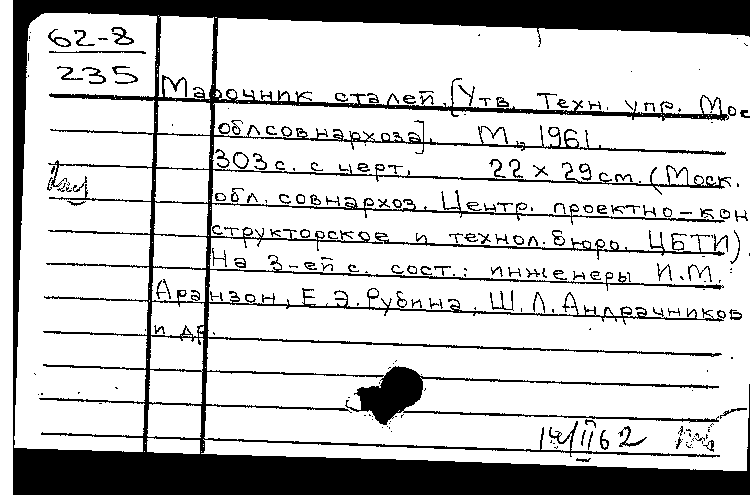 62-8
235
Марочник сталей. [Утв. Техн. упр. Мос
облсовнархоза]. М., 1961.
303 с. с черт. 22 x 29 см. (Моск.
обл. совнархоз. Центр. проектно-кон
структорское и технол. бюро. ЦБТИ).
На 3-ей с. сост.: инженеры И.М.
Аранзон, Е.Э.Рубина, Ш.Л.Андрачников
и др.
14/II 62